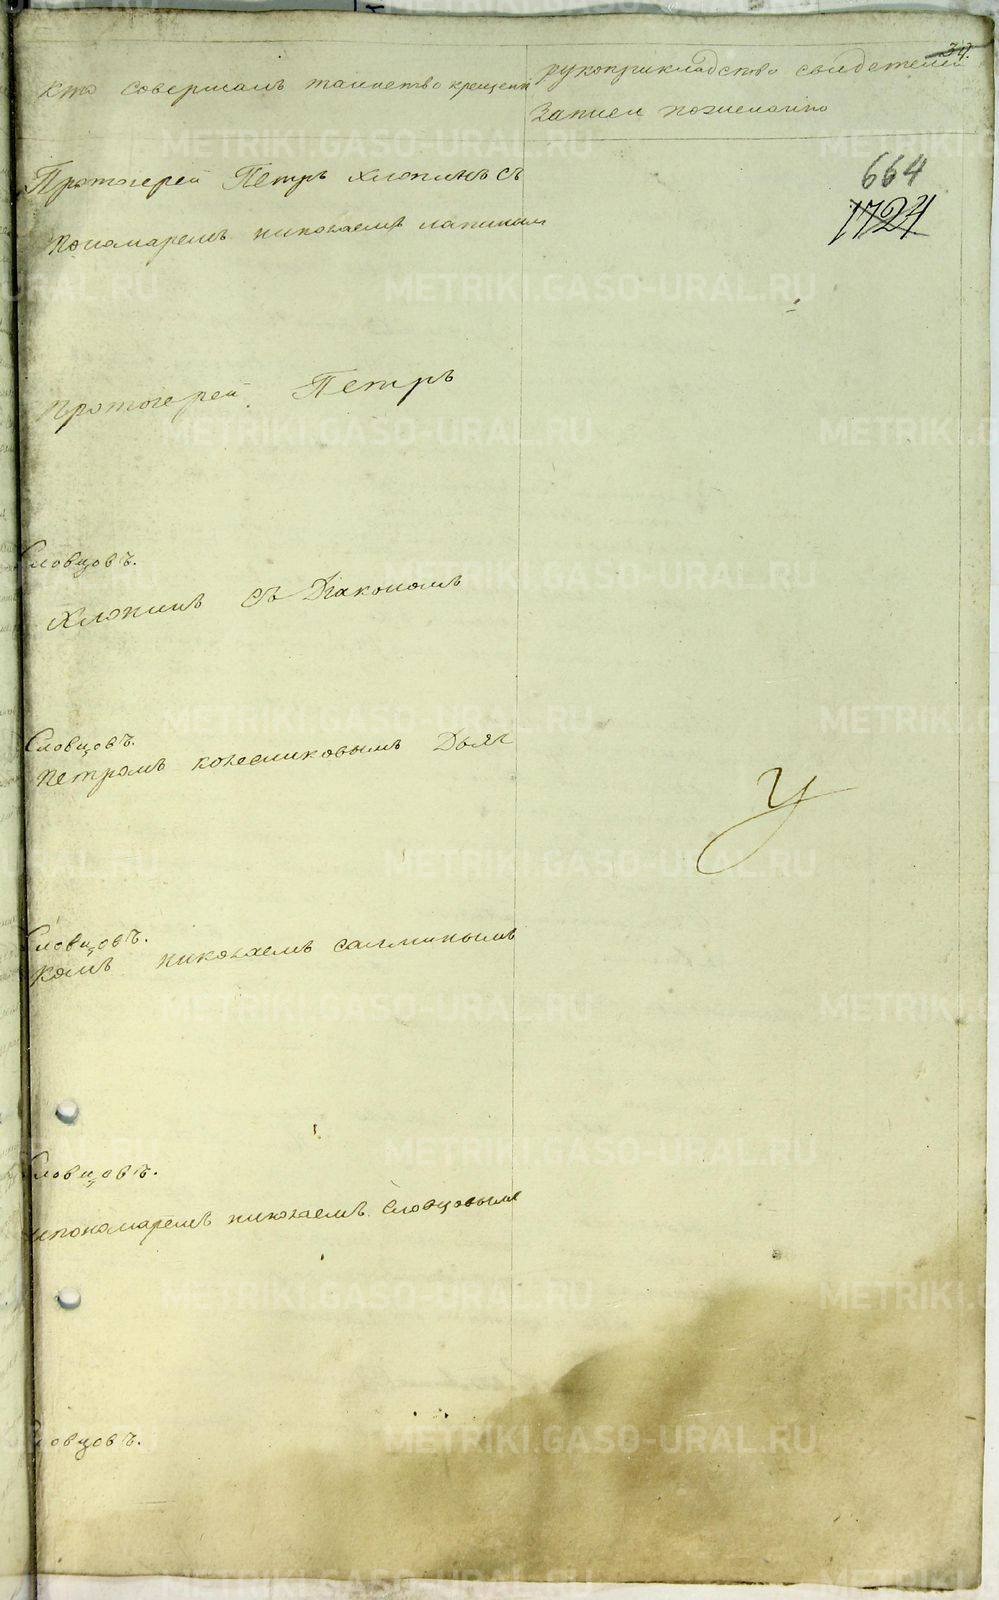 39.
кто совершалъ таинство крещенія
рукоприкладство свидетелей
записи по желанію
664
1724
Протоіерей Петръ Хлопинъ съ
пономаремъ николаемъ лапинымъ
протоіерей Петръ
Словцовъ.
Хлопинъ съ Діакономъ
Словцовъ.
петромъ колесниковымъ Дьяч
Словцовъ.
комъ николаемъ
Словцовъ.
ипономаремъ николаемъ Словцовымъ
Словцовъ.
METRIKI.GASO-URAL.RU